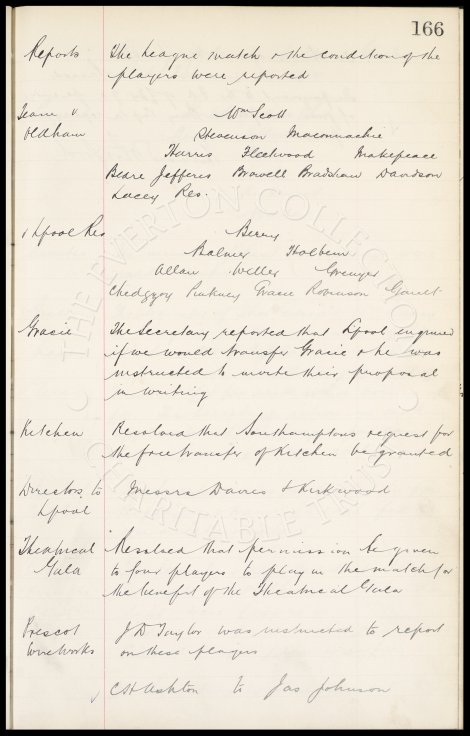 166
Reports The League match & the condition of the
players were reported
Teams v Wm Scott
Oldham Stevenson Maconnachie
Harris Fleetwood Makepeace
Beare Jefferis Browell Bradshaw Davidson
Lacey Res.
v Lpool Res Berry
Balmer Holbem
Allan Weller Grenyer
Chedgzoy Pinkney Gracie Robinson Gault
Gracie The Secretary reported that Lpool enquired
if we would transfer Gracie & he was
instructed to invite their proposal
in writing
Kitchen Resolved that Southamptons request for
the free transfer of Kitchen be granted
Directors to Messrs Davies & Kirkwood
Lpool
Theatrical Resolved that permission be given
Gala to four players to play in the match for
the benefit of the Theatrical Gala
Prescot J D Taylor was instructed to report
Wireworks on these players
v C H Ashton to Jas Johnson
THE EVERTON COLLECTION
CHARITABLE TRUST